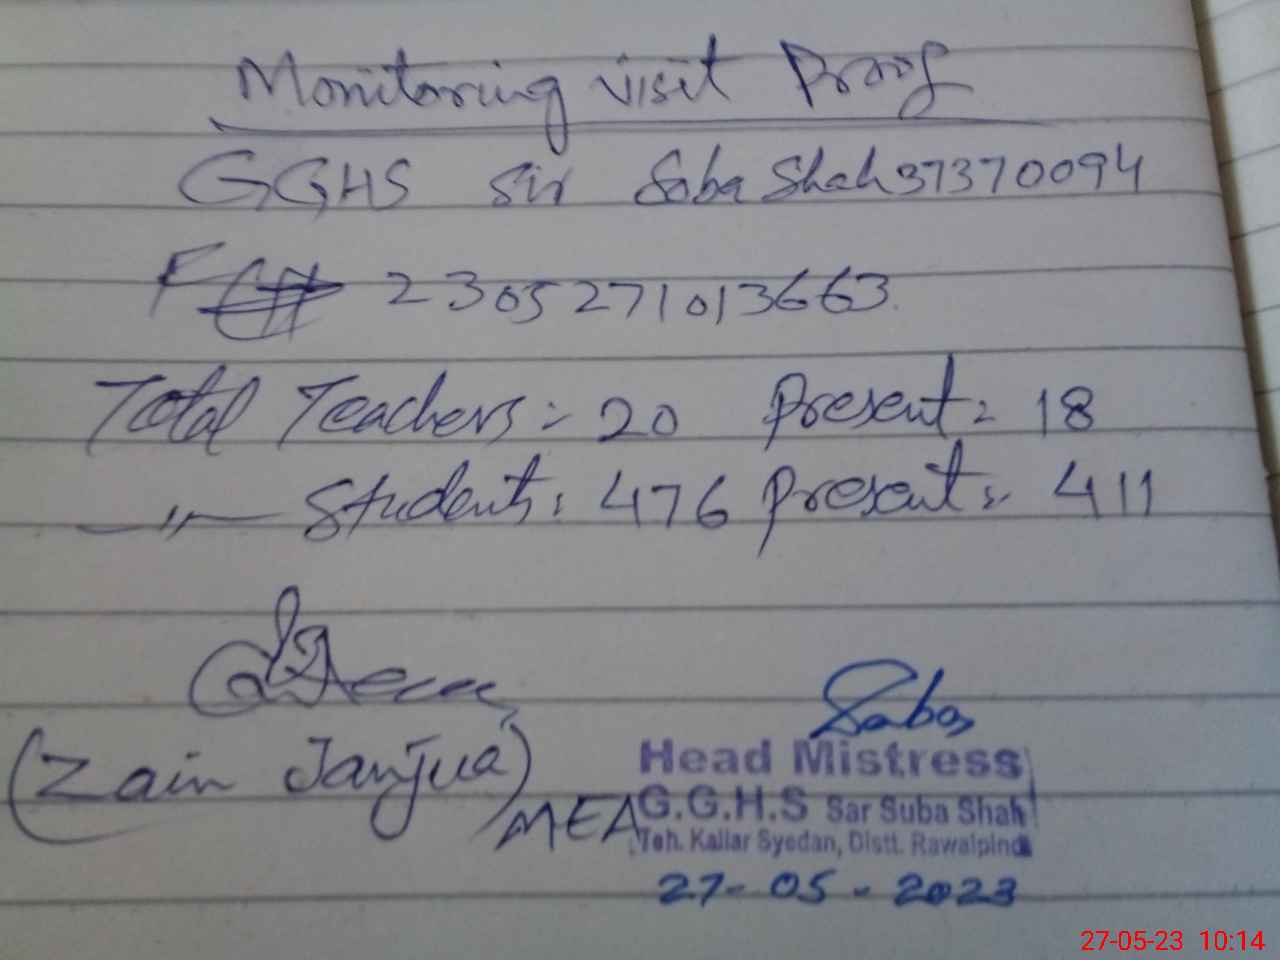 Monitoring visit Proof
GGHS Sir Saba Shah 37370094
F 2305271013663.
Total Teachers = 20 Present = 18
—〃— Students: 476 Present: 411
(Zain Janjua)
MEA
Saba
Head Mistress
G.G.H.S Sar Suba Shah
Teh. Kallar Syedan, Distt. Rawalpindi
27-05-2023
27-05-23 10:14